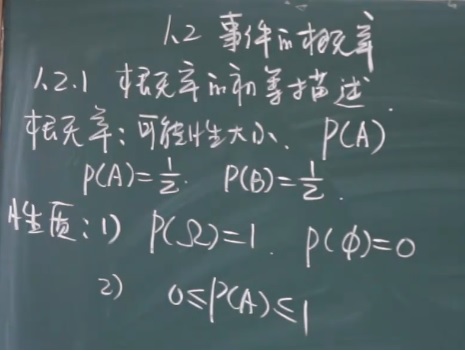 1.2 事件的概率
1.2.1 概率的初等描述
概率:可能性大小. P(A)
P(A)=1/2. P(B)=1/2.
性质:1) P(Ω)=1. P(φ)=0
2) 0≤P(A)≤1